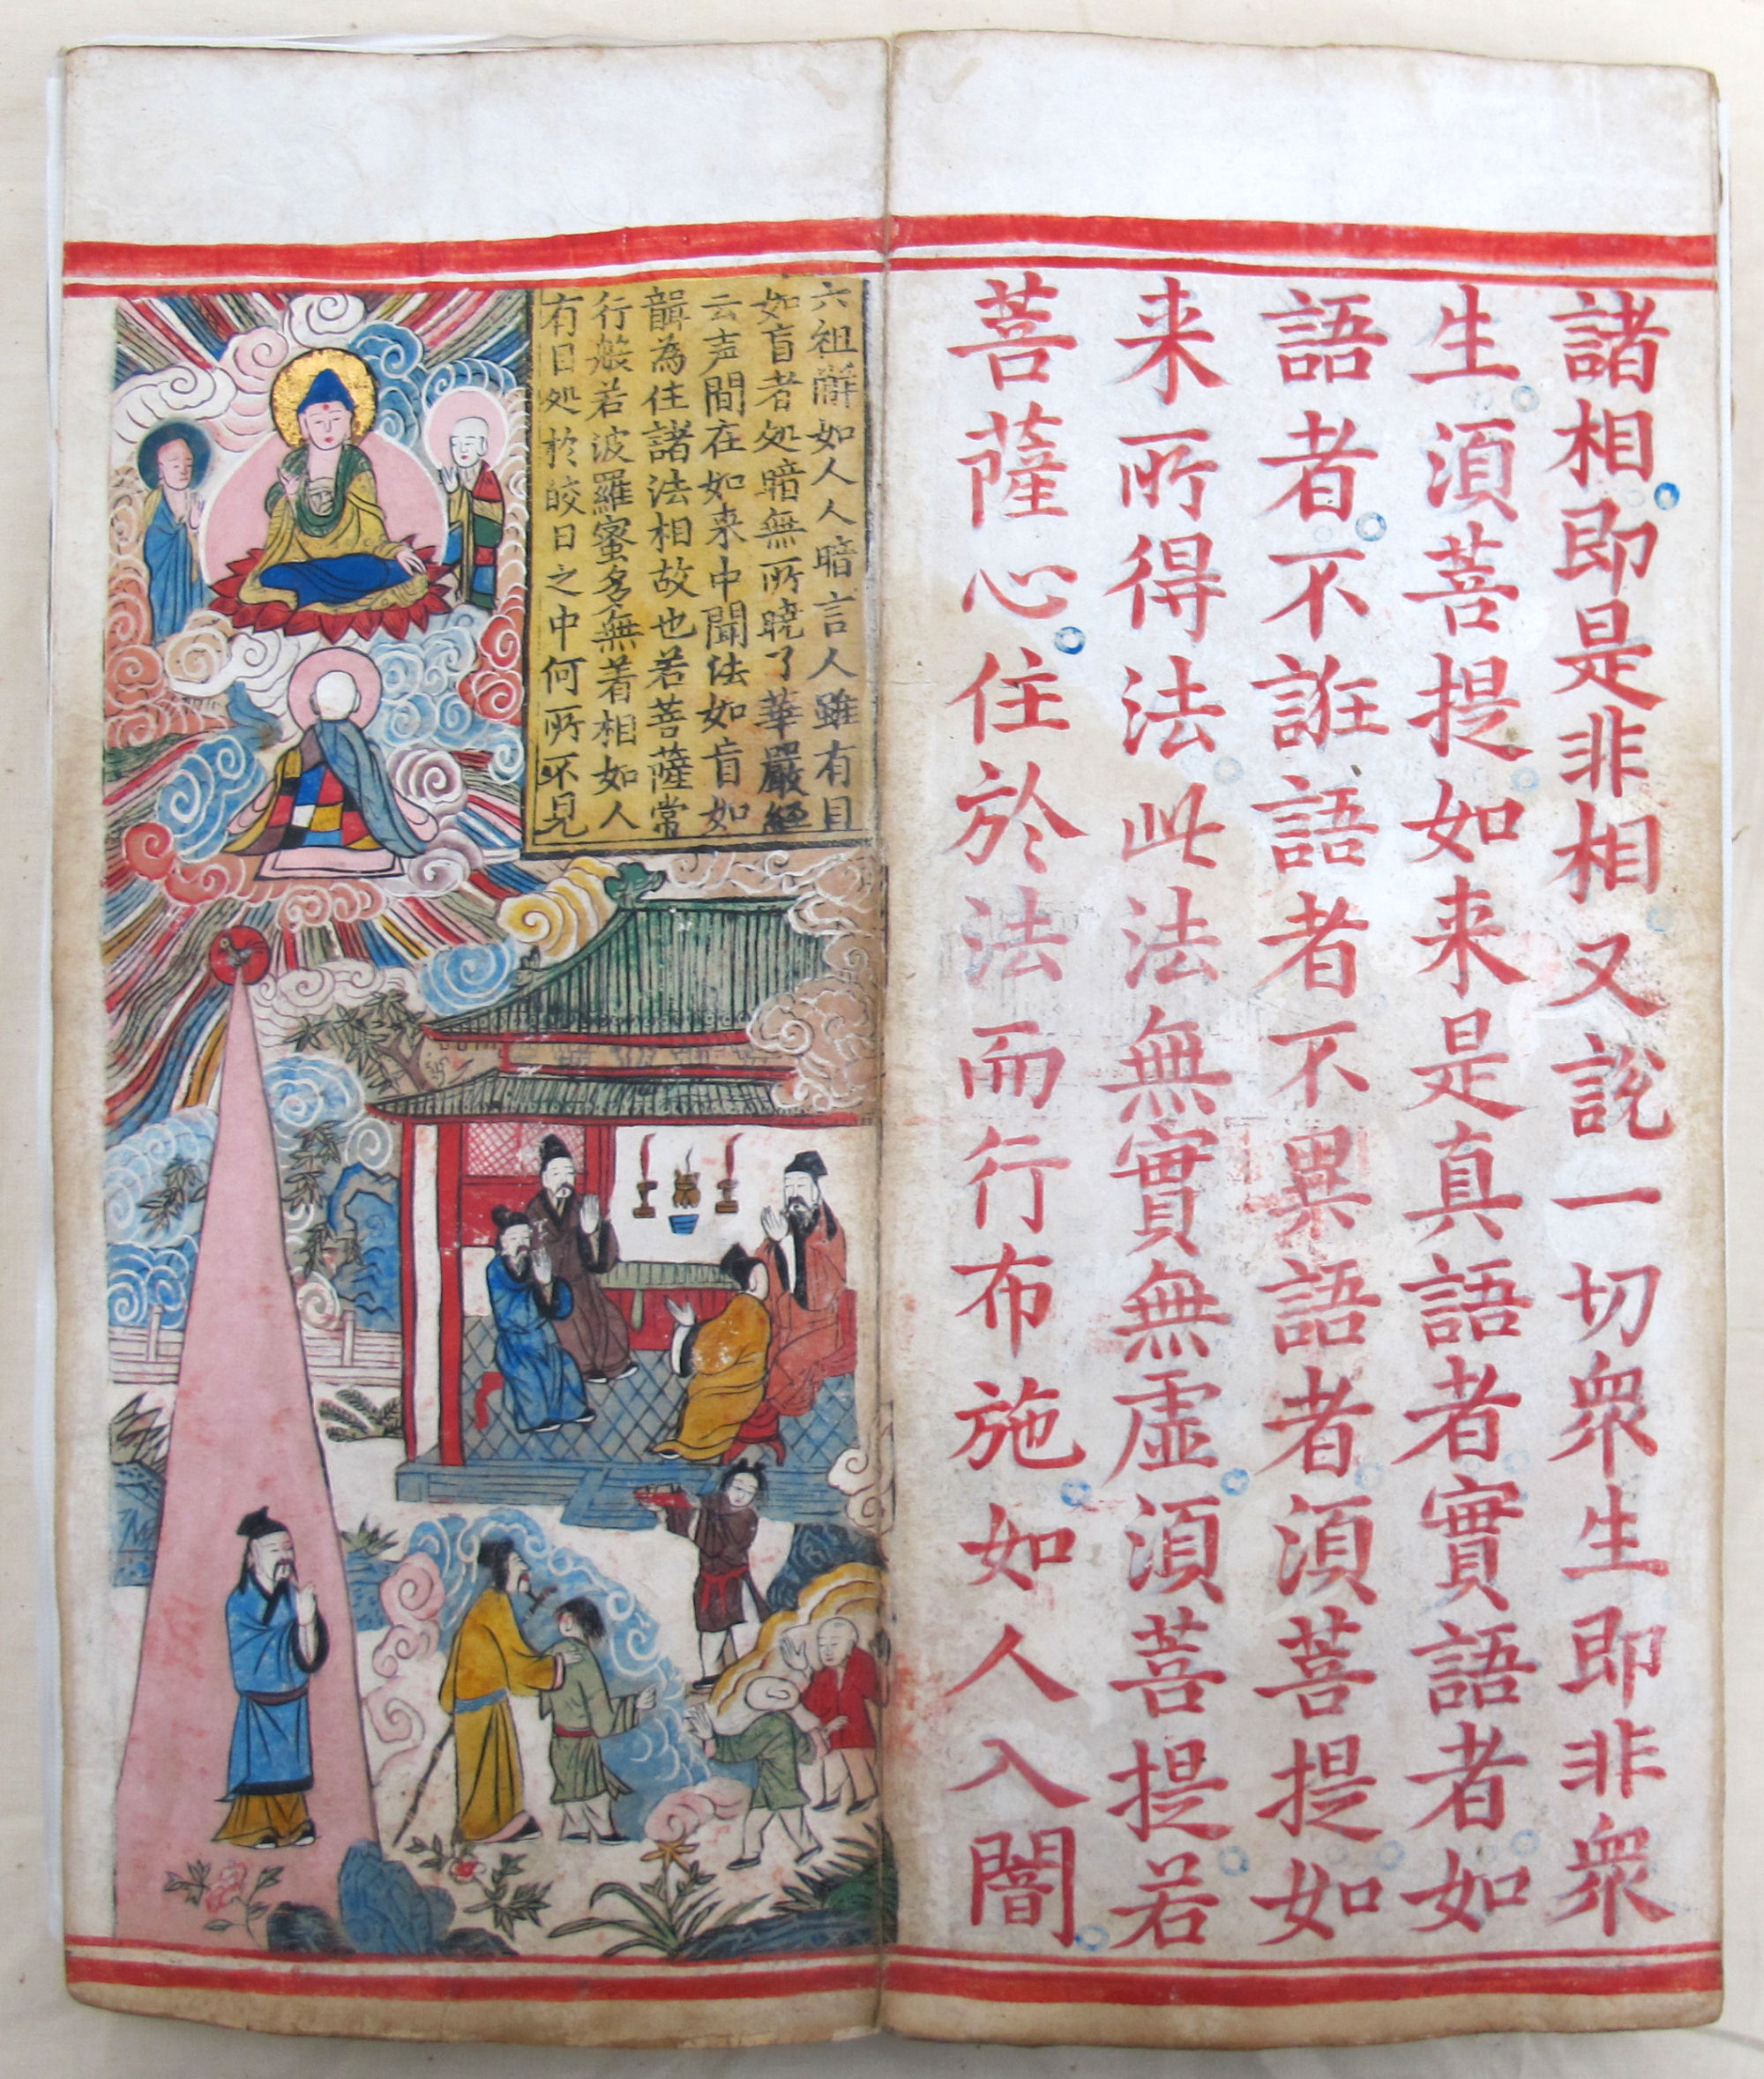 諸相即是非相又說一切衆生即非衆
生湏菩提如来是真語者實語者如
語者不誑語者不異語者湏菩提如
来所得法此法無實無虛湏菩提若
菩薩心住於法而行布施如人入闇
六祖觧如人人暗言人雖有目
如盲者処暗無所曉了華嚴經
云声間在如来中聞法如盲如
聾為住諸法相故也若菩薩常
行般若波羅蜜多無着相如人
有目処於皎日之中何所不見